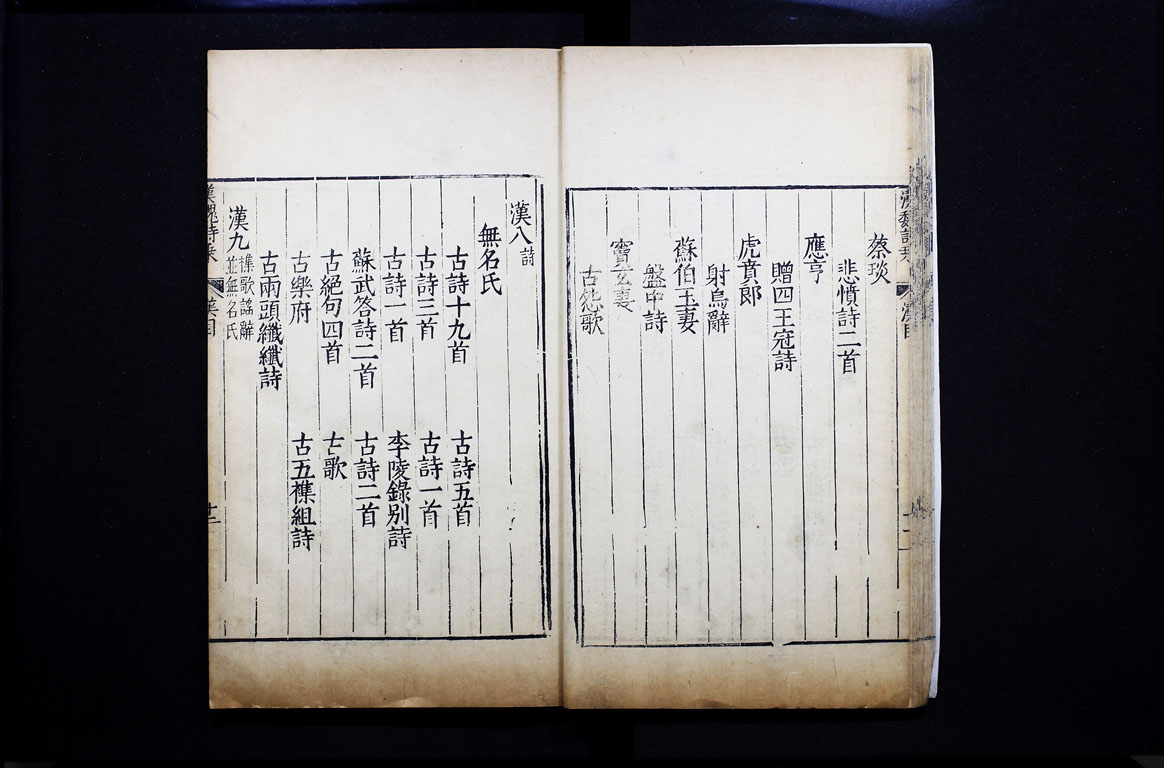 蔡琰
悲憤詩二首
應亨
贈四王冠詩
虎賁郎
射烏辭
蘇伯玉妻
盤中詩
竇玄妻
古怨歌
漢八詩
無名氏
古詩十九首 古詩五首
古詩三首 古詩一首
古詩一首 李陵錄別詩
蘇武答詩二首 古詩二首
古絕句四首 古歌
古樂府 古五襍組詩
古兩頭纖纖詩
漢九襍歌謠辭並無名氏
漢魏詩乘 漢目 十二